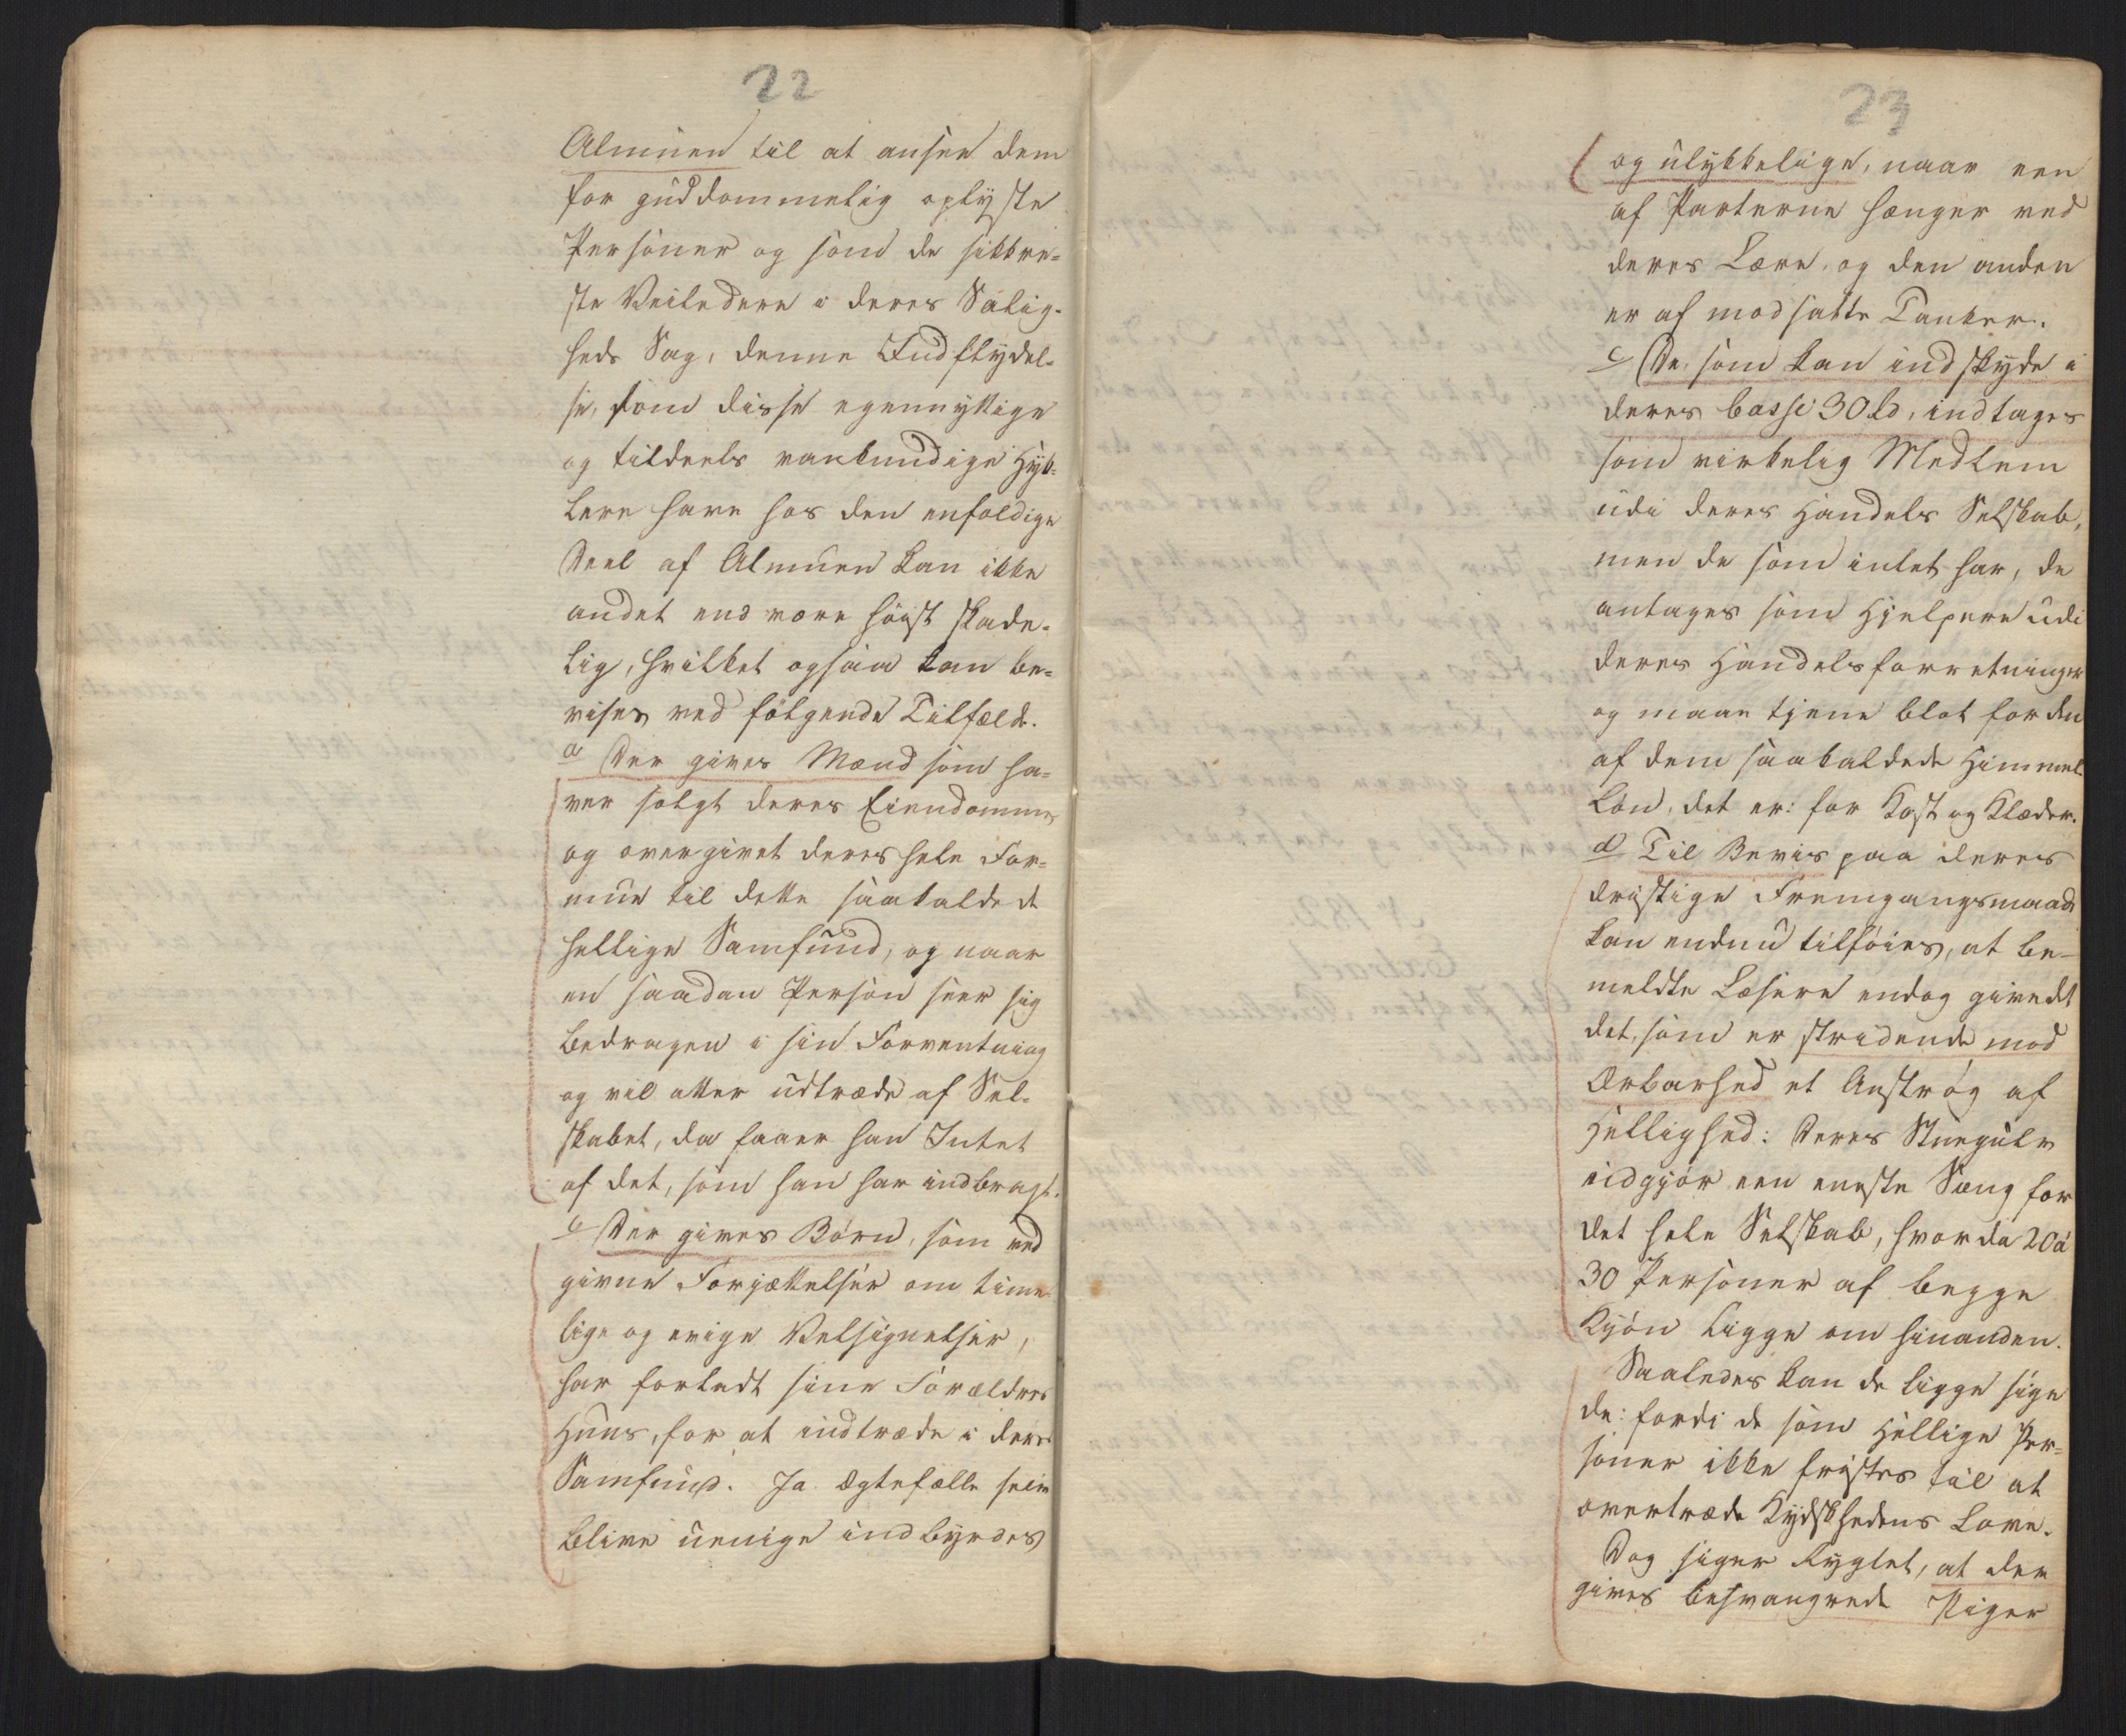 22
Almuen til at ansee dem
for guddommelig oplyste
Personer og som de sikkre-
ste Veiledere i deres Salig-
heds Sag, denne Indflydel-
se, som disse egennyttige
og tildeels vankundige Hyk-
lere have hos den enfoldige
Deel af Almuen kan ikke
andet end være høist skade-
lig, hvilket ogsaa kan be-
vises ved følgende Tilfælde.
a Der gives Mænd som ha-
ver solgt deres Eiendomme
og overgivet deres hele For-
mue til dette saakaldede
hellige Samfund, og naar
en saadan Person seer sig
bedragen i sin Forventning
og vil atter udtræde af Sel-
skabet, da faaer han Intet
af det, som han har indbragt.
b Der gives Børn, som ved
givne Forjættelser om time-
lige og evige Velsignelser,
har forladt sine Forældres
Huus, for at indtræde i deres
Samfund. Ja Ægtefælle selv
blive uenige indbyrdes
23
og ulykkelige, naar een
af Parterne hænger ved
deres Lære, og den anden
er af modsatte Tanker.
c De, som kan indskyde i
deres Casse 30 ld, indtages
som virkelig Medlem
udi deres Handels Selskab,
men de som intet har, de
antages som Hjelpere udi
deres Handelsforretninger
og maae tjene blot for den
af dem saakaldede Himmel-
Løn, det er: for Kost og Klæder.
d Til Beviis paa deres
dristige Fremgangsmaade
kan endnu tilføies, at be-
meldte Læsere endog give det
det, som er stridende mod
Ærbarhed et Anstrøg af
Hellighed: Deres Stuegulv
udgjør een eneste Sæng for
det hele Selskab, hvor da 20 à
30 Personer af begge
Kjøn ligge om hinanden.
Saaledes kan de ligge sige
de: fordi de som Hellige Per-
soner ikke fristes til at
overtræde Kydskhedens Love.
Dog siger Rygtet, at der
gives besvangrede Piger